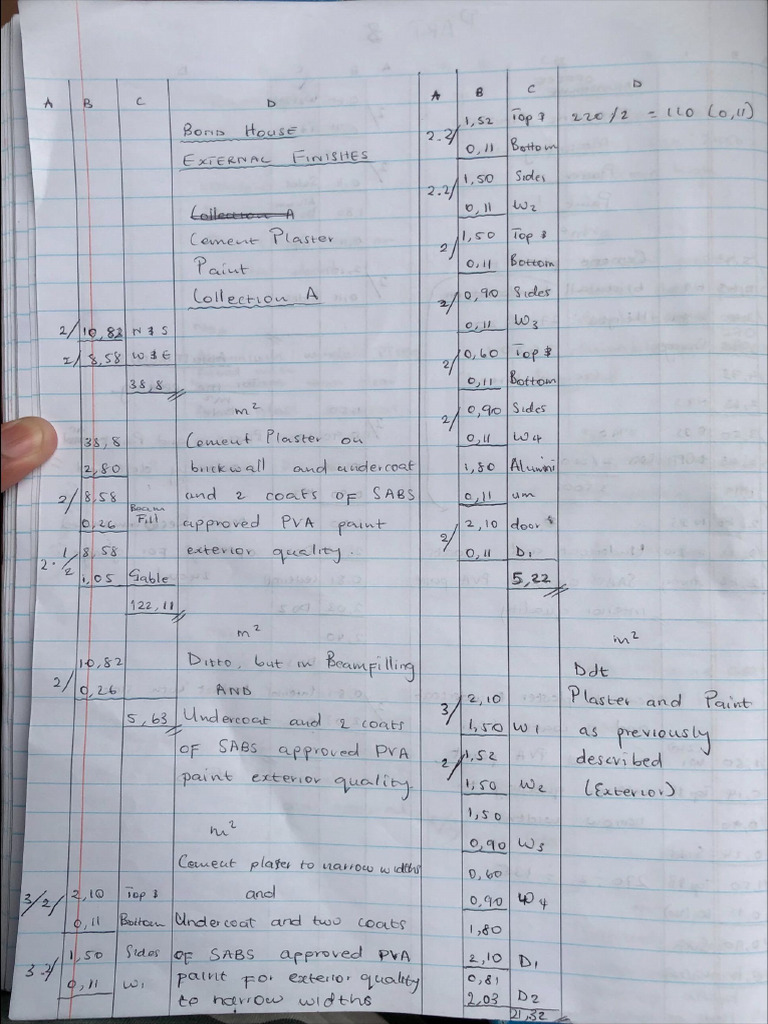 A B C D
BOND HOUSE
EXTERNAL FINISHES
Collection A
Cement Plaster
Paint
Collection A
2/ 10,82 N & S
2/ 8,58 W & E
38,8
m²
38,8 Cement Plaster on
2,80 brickwall and undercoat
2/ 8,58 and 2 coats OF SABS
0,26 Beam Fill approved PVA paint
2·1/2 8,58 exterior quality.
1,05 Gable
122,11
m²
10,82 Ditto, but in Beamfilling
2/ 0,26 AND
5,63 Undercoat and 2 coats
OF SABS approved PVA
paint exterior quality.
m²
Cement plaster to narrow widths
3/2/ 2,10 Top & and
0,11 Bottom Undercoat and two coats
1,50 Sides OF SABS approved PVA
3.2/ 0,11 W1 paint for exterior quality
to narrow widths
A B C D
2.2/ 1,52 Top & 220/2 = 110 (0,11)
0,11 Bottom
2.2/ 1,50 Sides
0,11 W2
2/ 1,50 Top &
0,11 Bottom
2/ 0,90 Sides
0,11 W3
2/ 0,60 Top &
0,11 Bottom
2/ 0,90 Sides
0,11 W4
1,80 Alumini
0,11 um
2/ 2,10 door &
0,11 D1
5,22
m²
Ddt
3/ 2,10 Plaster and Paint
1,50 W1 as previously
2/ 1,52 described
1,50 W2 (Exterior)
1,50
0,90 W3
0,60
0,90 W4
1,80
2,10 D1
0,81
2,03 D2
21,32